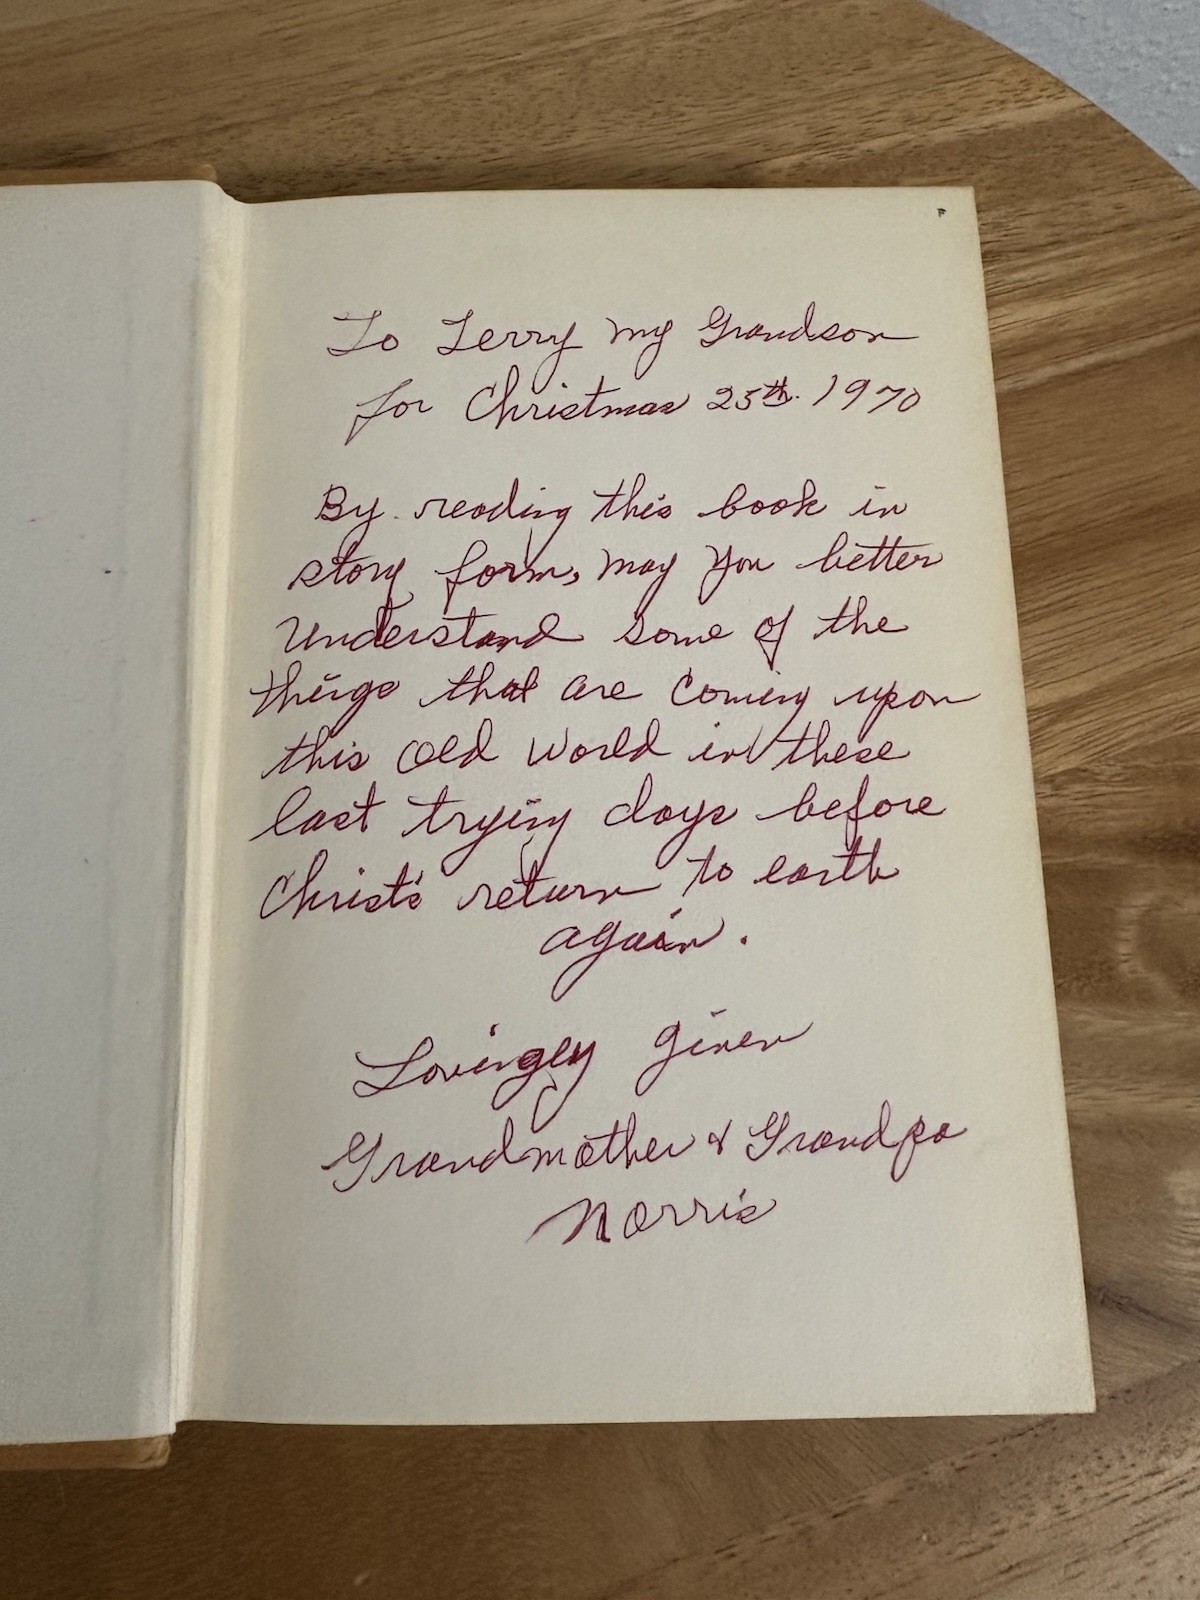 F
To Terry my Grandson
for Christmas 25th. 1970
By reading this book in
story form, may you better
Understand some of the
things that are Coming upon
this Old World in these
last trying days before
Christ's return to earth
again.
Lovingly given
Grandmother & Grandpa
Norris